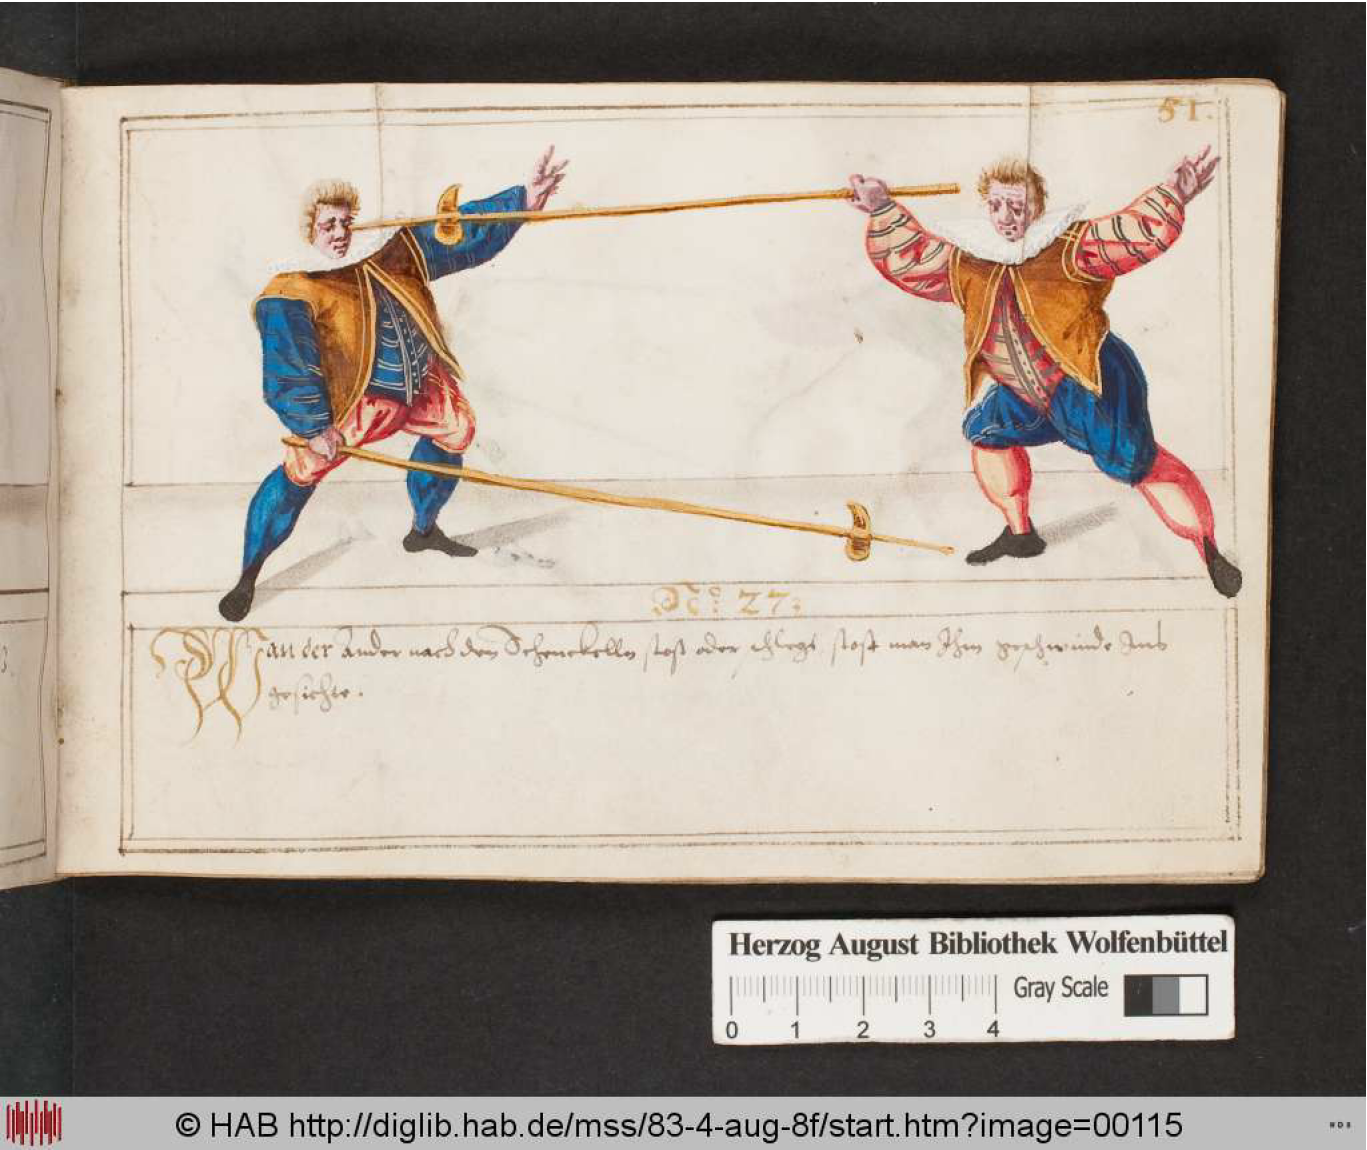 51.
No: 27:
Wan der Ander nach den Schenckelln stost oder schlegt, stost man Ihm geschwinde Ins
gesichte.
3.
Herzog August Bibliothek Wolfenbüttel
0 1 2 3 4 Gray Scale
© HAB http://diglib.hab.de/mss/83-4-aug-8f/start.htm?image=00115